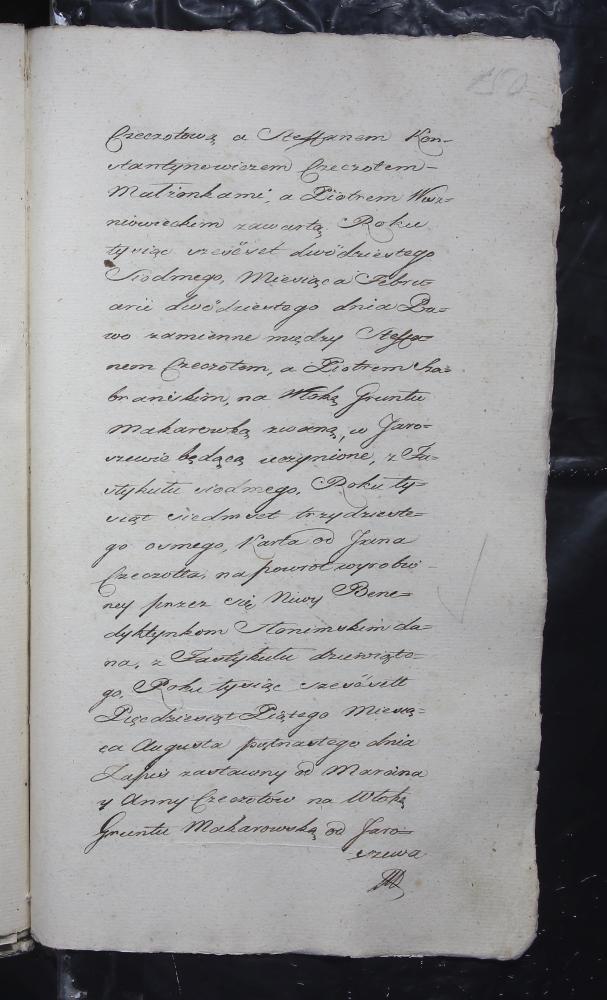 150
Czeczotową a Steffanem Kon-
stantynowiczem Czeczotem-
Małżonkami, a Piotrem Wisz-
niowieckim zawartą. Roku
tysiąc szesset dwódziestego
Siodmego, Miesiąca Febru-
arii dwódziestego dnia Pra-
wo zamienne między Steffa-
nem Czeczotem, a Piotrem
branskim, na Włokę Gruntu
Makarowską zwaną, w Jaro-
szewie będącą uczynione, z Fa-
stykułu siodmego, Roku ty-
siąc siedmset trzydzieste-
go osmego, Karta od Jana
Czeczotta, na powrot wyrobio-
ney przez się Niwy Bene-
dyktynkom Słonimskim da-
na, z Fastykułu dziewiąte-
go, Roku tysiąc szessett
Pięcdziesiąt Piątego Miesią-
ca Augusta piętnastego dnia
Zapis zastawny od Marcina
y Anny Czeczotów na Włokę
Gruntu Makarowską od Jaro-
szewa